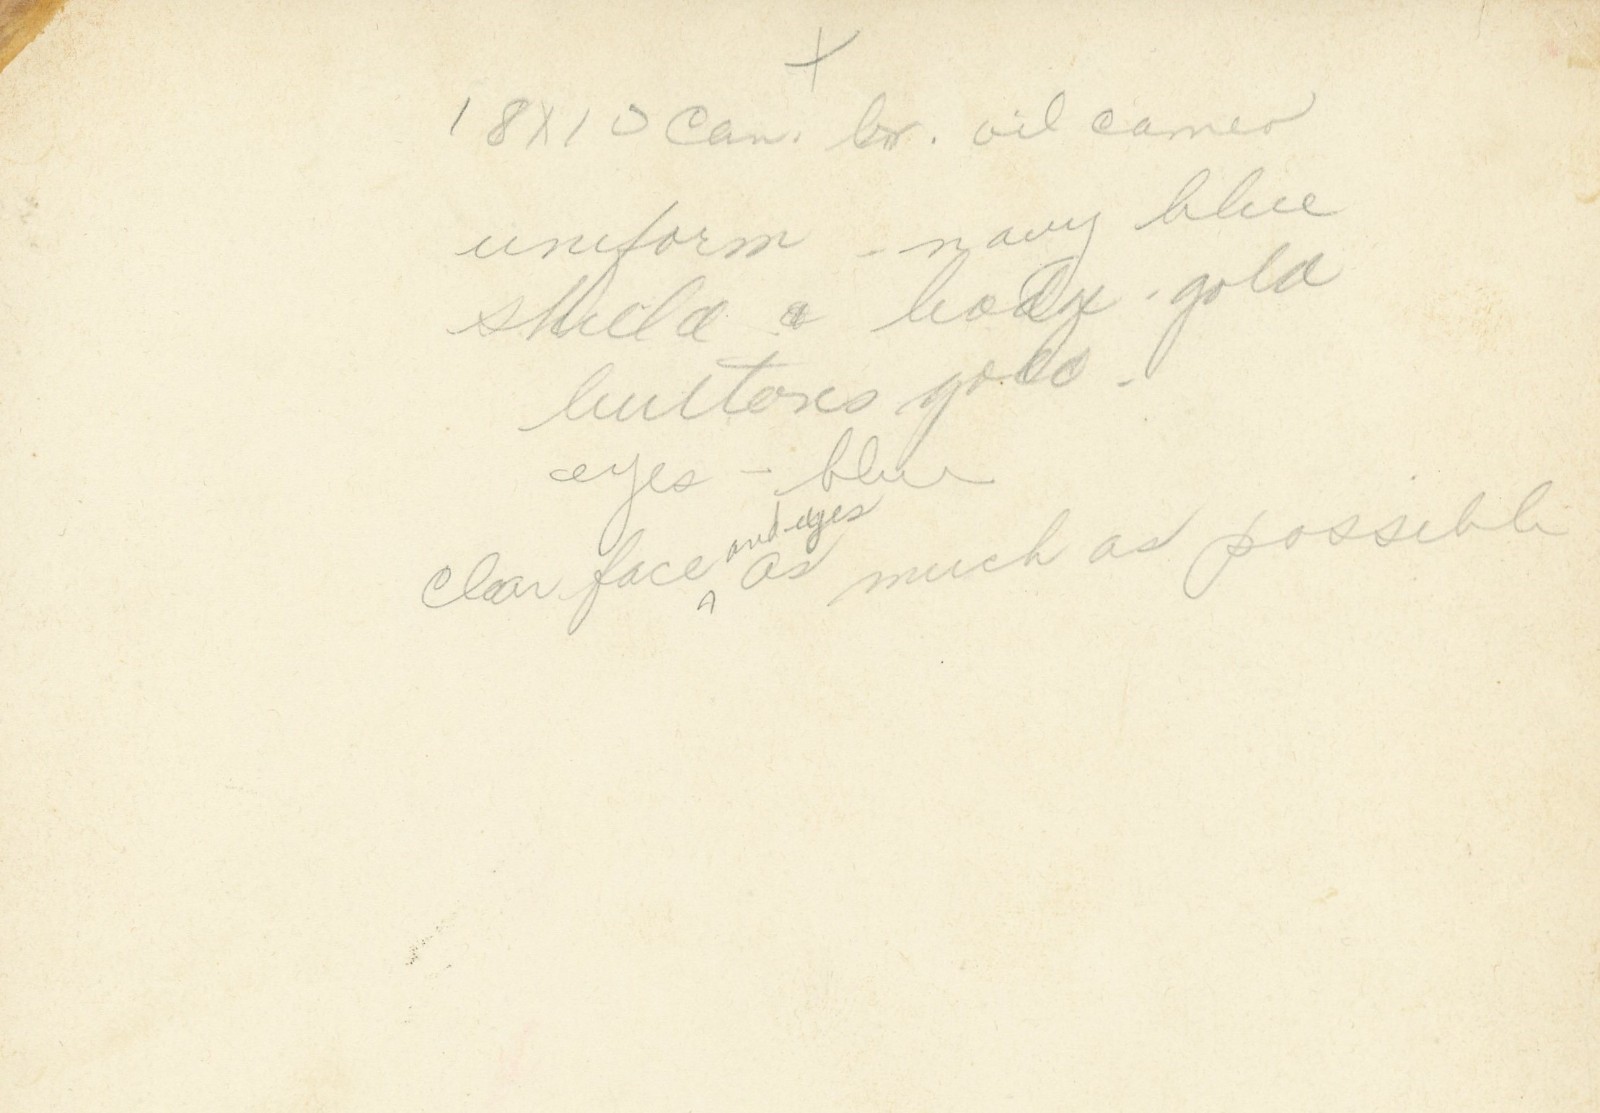 1 8X10 Can. br. oil cameo
uniform - navy blue
shield & body - gold
buttons gold.
eyes - blue
clear face ^ and eyes as much as possible